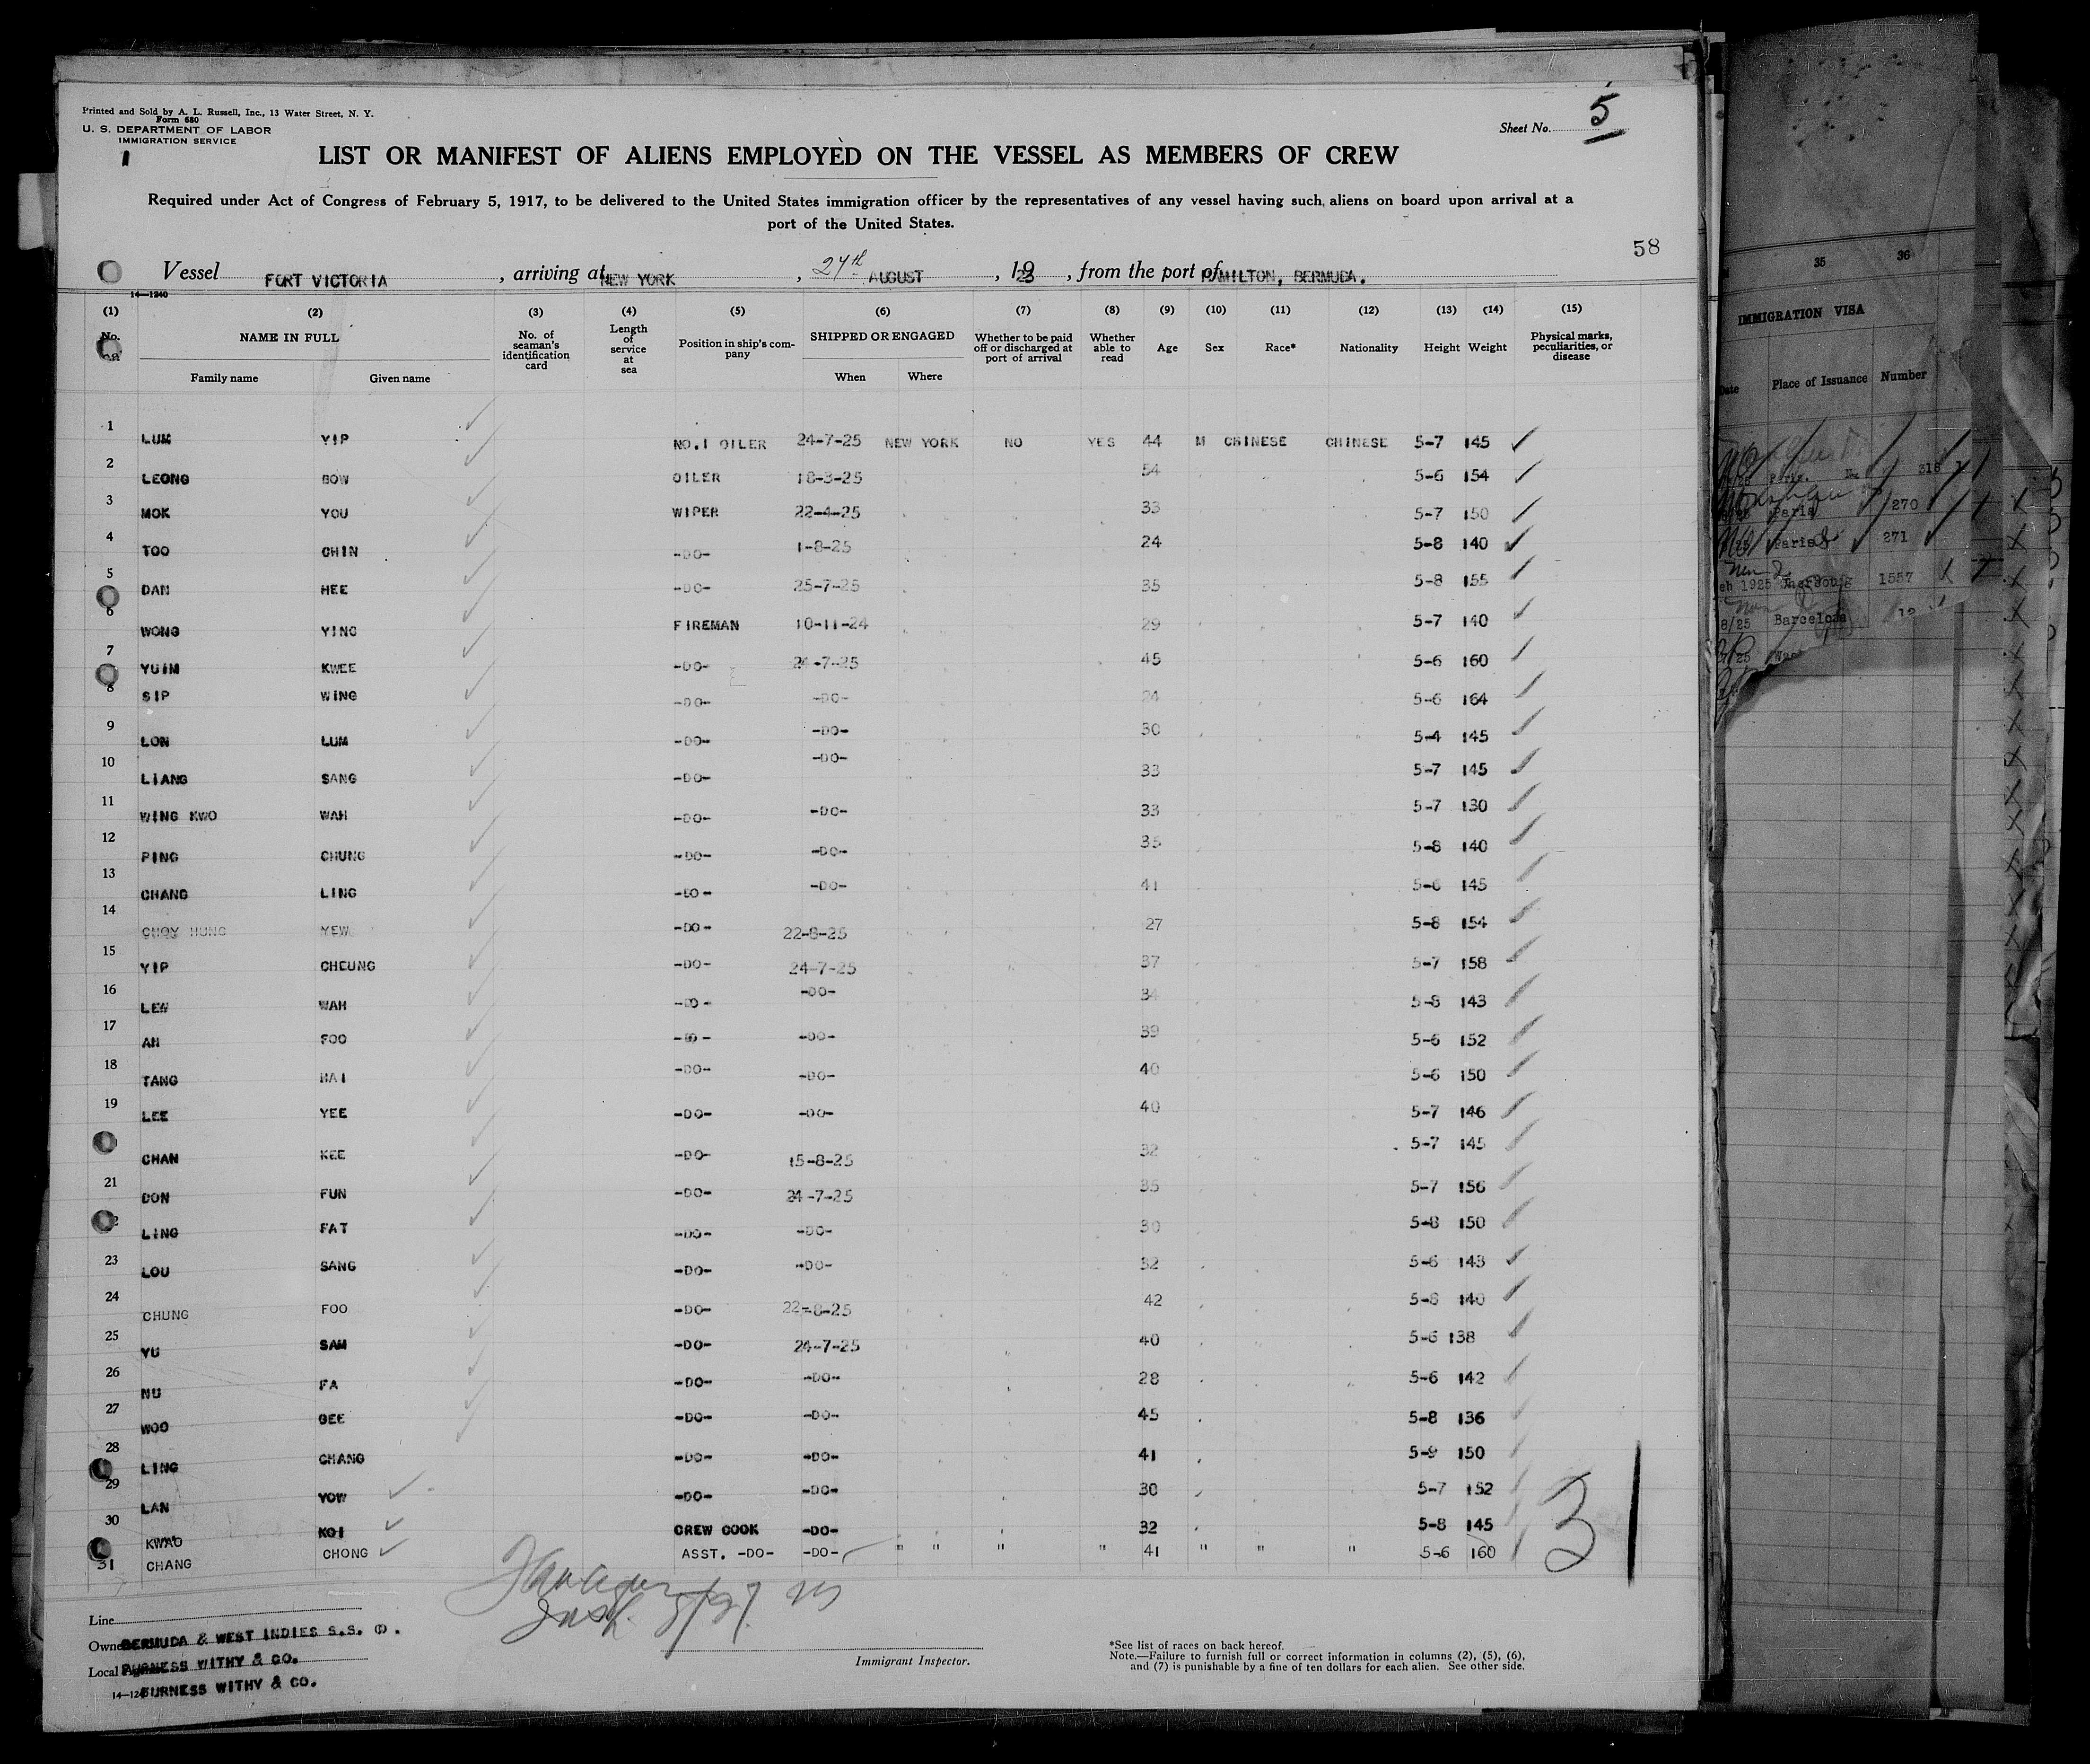 Printed and Sold by A. L. Russell, Inc., 13 Water Street, N. Y.
Form 680
U. S. DEPARTMENT OF LABOR
IMMIGRATION SERVICE
1
Sheet No. 5
LIST OR MANIFEST OF ALIENS EMPLOYED ON THE VESSEL AS MEMBERS OF CREW
Required under Act of Congress of February 5, 1917, to be delivered to the United States immigration officer by the representatives of any vessel having such aliens on board upon arrival at a
port of the United States.
58
Vessel FORT VICTORIA, arriving at NEW YORK, 27th AUGUST, 19 , from the port of HAMILTON, BERMUDA.
14—1240
(1) (2) (3) (4) (5) (6) (7) (8) (9) (10) (11) (12) (13) (14) (15)
No. NAME IN FULL No. of seaman's identification card Length of service at sea Position in ship's company SHIPPED OR ENGAGED Whether to be paid off or discharged at port of arrival Whether able to read Age Sex Race* Nationality Height Weight Physical marks, peculiarities, or disease
Family name Given name When Where
1 LUM YIP NO.1 OILER 24-7-25 NEW YORK NO YES 44 M CHINESE CHINESE 5-7 145
2 LEONG BOW OILER 18-3-25 54 5-6 154
3 MOK YOU WIPER 22-4-25 33 5-7 150
4 TOO CHIN -DO- 1-8-25 24 5-8 140
5 DAN HEE -DO- 25-7-25 35 5-8 155
6 WONG YING FIREMAN 10-11-24 29 5-7 140
7 YUIM KWEE -DO- 24-7-25 45 5-6 160
8 SIP WING -DO- -DO- 24 5-6 164
9 LON LUM -DO- -DO- 30 5-4 145
10 LIANG SANG -DO- -DO- 33 5-7 145
11 WING KWO WAH -DO- -DO- 33 5-7 130
12 PING CHUNG -DO- -DO- 35 5-8 140
13 CHANG LING -DO- -DO- 41 5-6 145
14 CHOY HUNG YEW -DO- 22-8-25 27 5-8 154
15 YIP CHEUNG -DO- 24-7-25 37 5-7 158
16 LEW WAH -DO- -DO- 34 5-8 143
17 AH FOO -DO- -DO- 39 5-6 152
18 TANG HAI -DO- -DO- 40 5-6 150
19 LEE YEE -DO- -DO- 40 5-7 146
CHAN KEE -DO- 15-8-25 32 5-7 145
21 DON FUN -DO- 24-7-25 35 5-7 156
2 LING FAT -DO- -DO- 30 5-8 150
23 LOU SANG -DO- -DO- 32 5-6 143
24 CHUNG FOO -DO- 22-8-25 42 140
25 YU SAM -DO- 24-7-25 40 5-6 138
26 NU FA -DO- -DO- 28 5-6 142
27 WOO GEE -DO- -DO- 45 5-8 136
28 LING CHANG -DO- -DO- 41 5-9 150
29 LAN YOW -DO- -DO- 30 5-7 152
30 KWAO KOI CREW COOK -DO- 32 5-8 145
31 CHANG CHONG ASST. -DO- -DO- " " " " 41 " " " 5-6 160
31
Line
Owners BERMUDA & WEST INDIES S.S. Co.
Local Agents FURNESS WITHY & CO.
14—1240 FURNESS WITHY & CO.
Immigrant Inspector.
*See list of races on back hereof.
Note.—Failure to furnish full or correct information in columns (2), (5), (6),
and (7) is punishable by a fine of ten dollars for each alien. See other side.
35 36
IMMIGRATION VISA
Date Place of Issuance Number
Paris. 316
Paris 270
Paris 271
1925 Cherbourg 1557
8/25 Barcelona